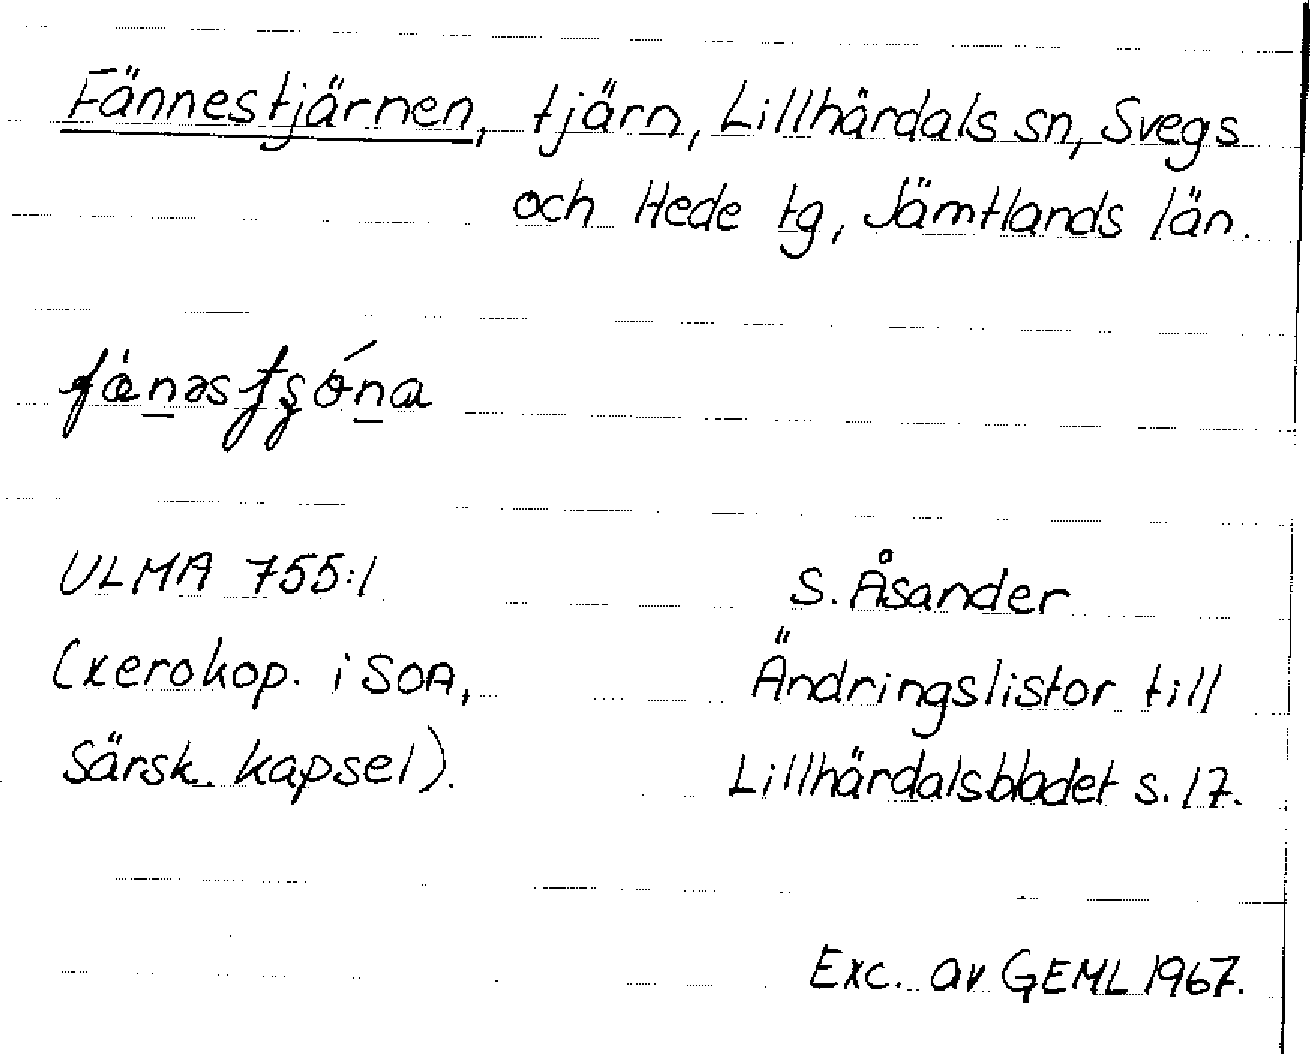 Fännestjärnen, tjärn, Lillhärdals sn, Svegs
och Hede tg, Jämtlands län.
ULMA 755:1
(xerokop. i SOA,
Särsk. kapsel).
S. Åsander
Ändringslistor till
Lillhärdalsbladet s. 17.
Exc. av GEML 1967.